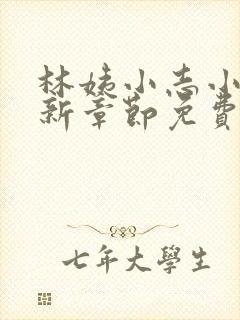 林姨小志小
新章節免費
七年大學生